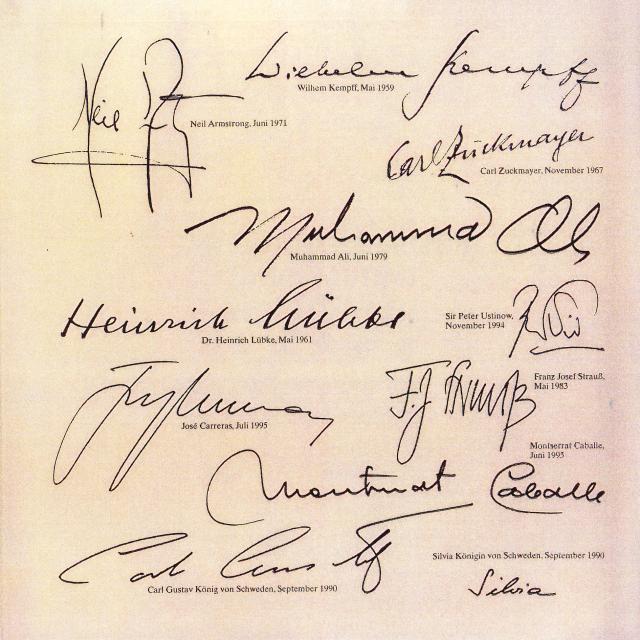 Neil
Wilhelm Kempff
Wilhem Kempff, Mai 1959
Neil Armstrong, Juni 1971
Carl Zuckmayer
Carl Zuckmayer, November 1967
Muhammad Ali
Muhammad Ali, Juni 1979
Heinrich Lübke
Dr. Heinrich Lübke, Mai 1961
Sir Peter Ustinow,
November 1994
F. J. Strauß
Franz Josef Strauß,
Mai 1983
José Carreras, Juli 1995
Montserrat Caballe,
Juni 1995
Montserrat Caballe
Carl Gustaf
Carl Gustav König von Schweden, September 1990
Silvia Königin von Schweden, September 1990
Silvia